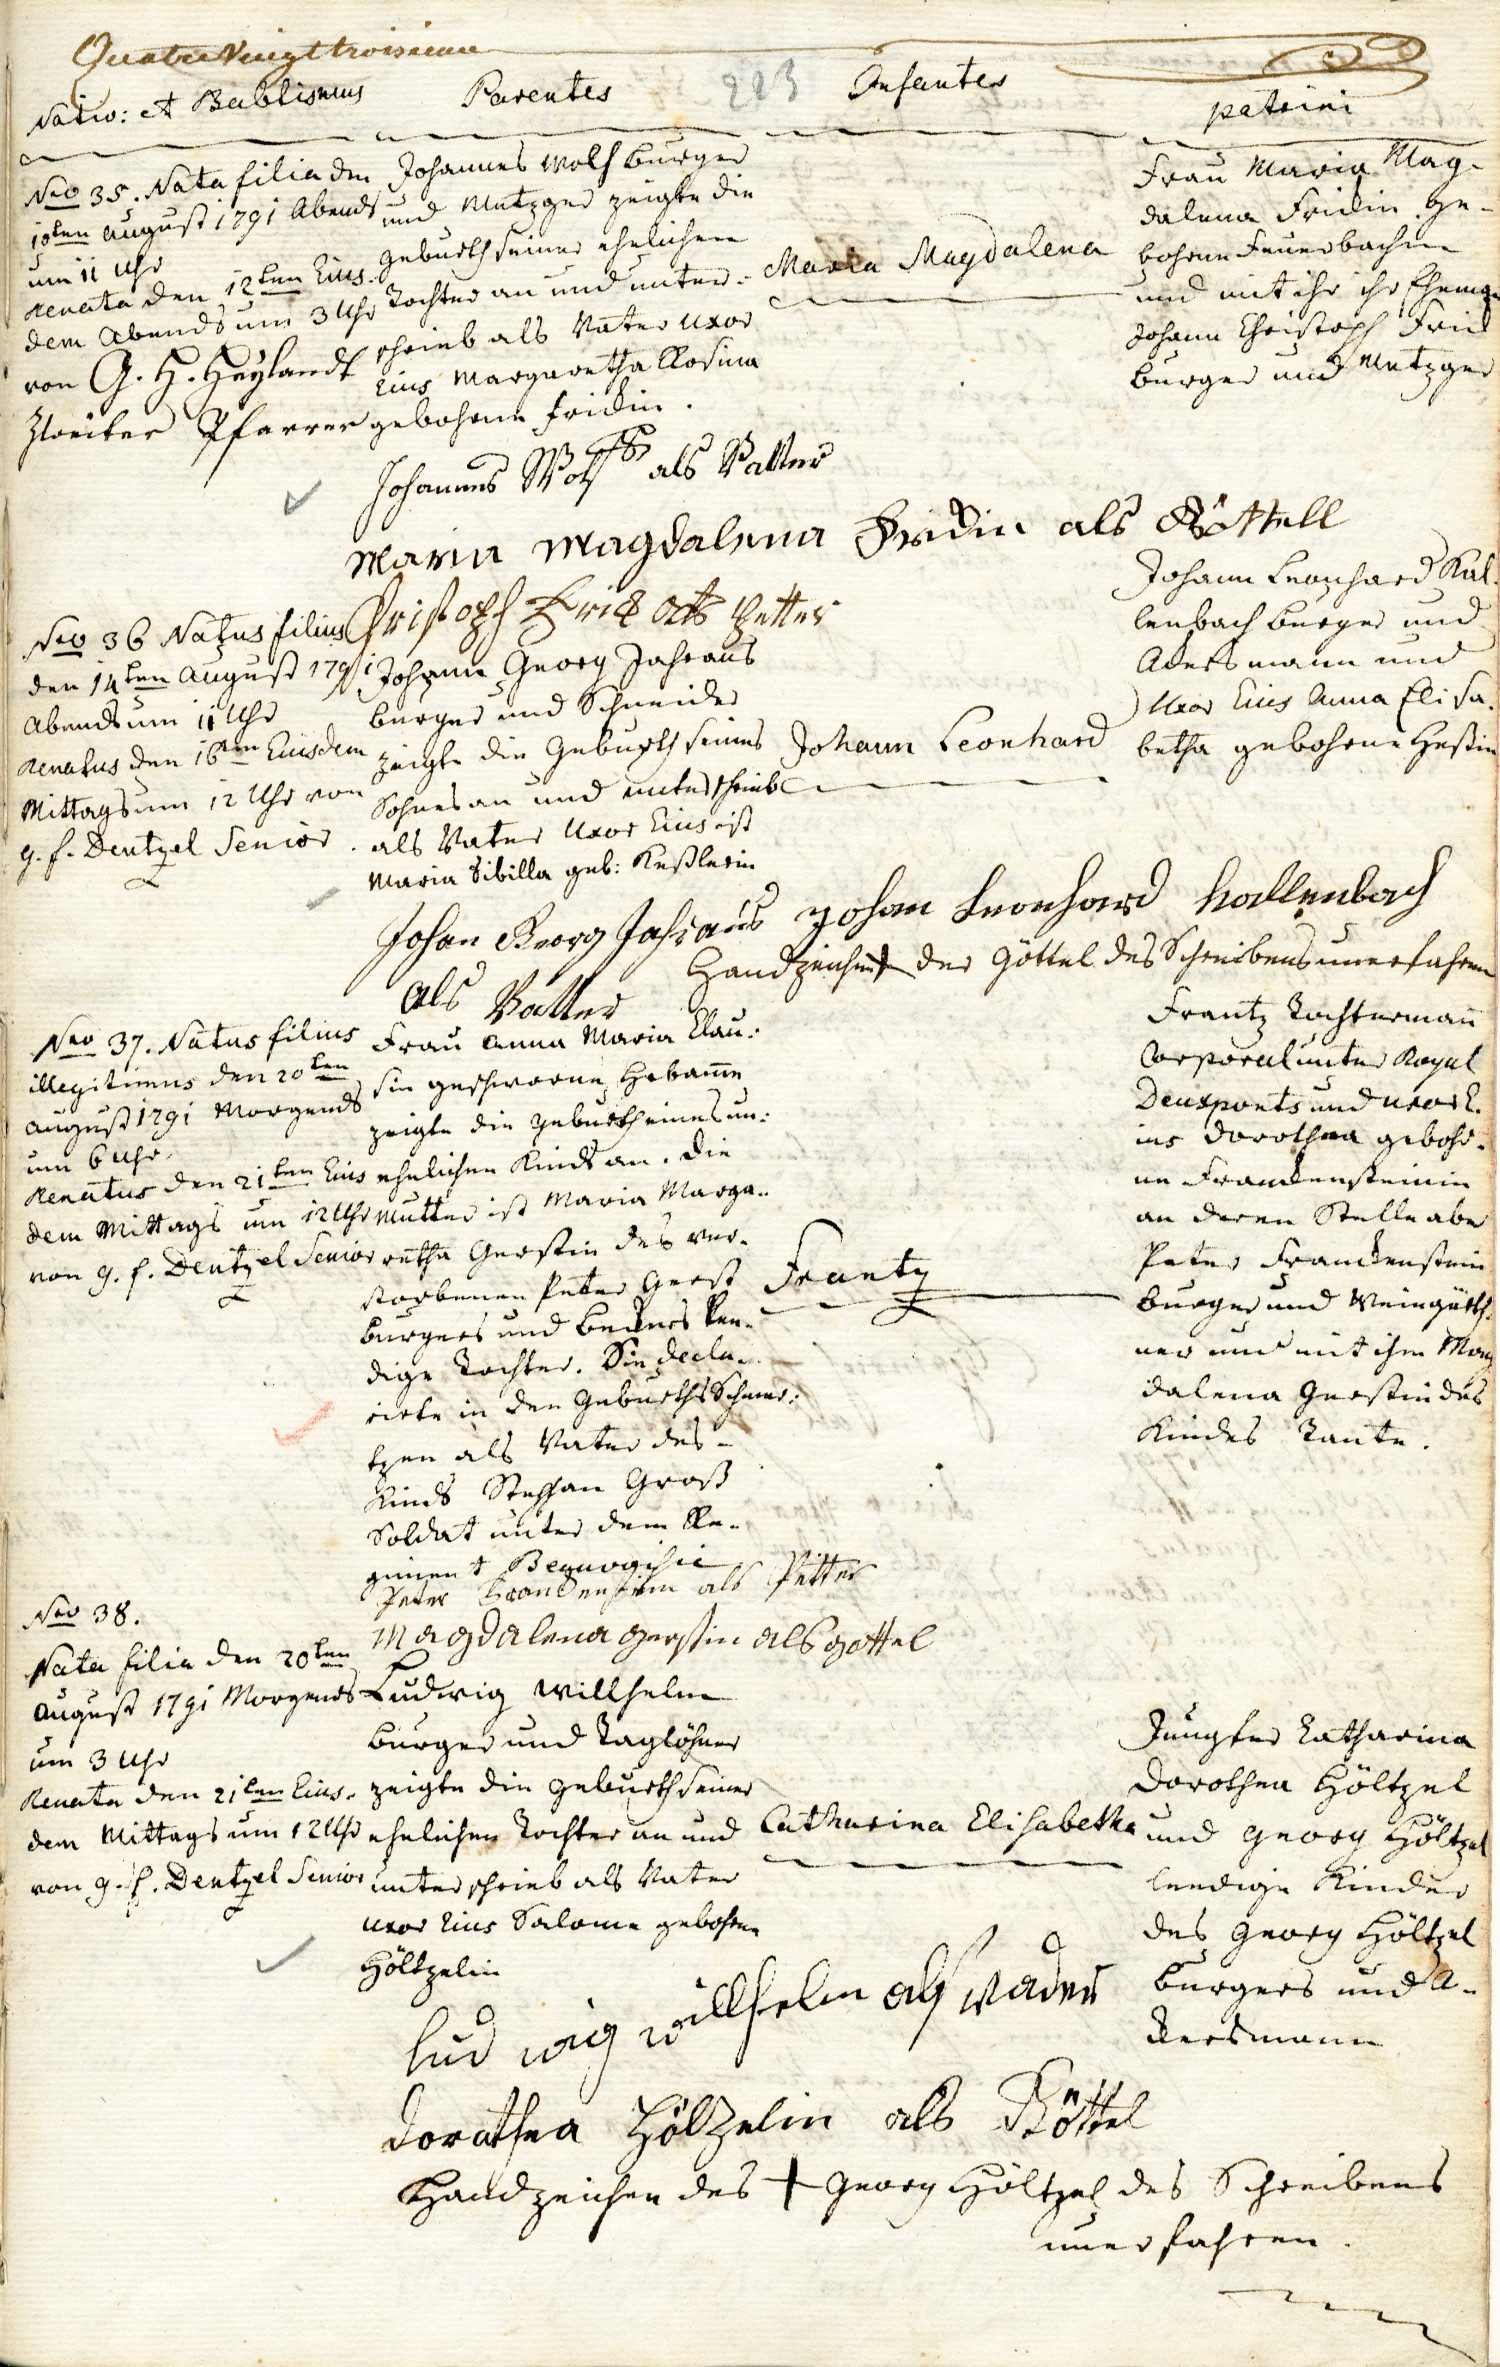 Quatre Vingt troisieme
223
Nativ: et Babtismus
Parentes
Infantes
patrini
Nro 35. Nata filia den
10ten August 1791 Abends
um 11 Uhr
Renata den 12ten Eius-
dem Abends um 3 Uhr
von G. H. Heylandt
Zweiter Pfarrer
Johannes Wolf burger
und Metzger zeigte die
Geburth seiner ehelichen
Tochter an und unter-
schrieb als Vater Uxor
Eius Margaretha Rosina
gebohrne Fridin.
Maria Magdalena
Frau Maria Mag-
dalena Fridin ge-
bohrne Feuerbachin
und mit ihr ihr Eheman
Johann Christoph Frid
burger und Metzger
Johannes Wolf als Vatter
Maria Magdalena Fridin als Göttell
Christoph Frid als Petter
Nro 36 Natus filius
den 14ten August 1791
Abends um 11 Uhr
Renatus den 16ten Eiusdem
Mittags um 12 Uhr von
G. F. Dentzel Senior.
Johann Georg Jahraus
burger und Schneider
zeigte die Geburth seines
Sohnes an und unterschrieb
als Vater Uxor Eius ist
Maria Sibilla geb: Keßlerin
Johann Leonhard
Johann Leonhard Kal-
lenbach burger und
Ackersmann und
Uxor Eius Anna Elisa-
betha gebohrne Hestin
Johan Georg Jahraus
als Vatter
Johan Leonhard Kallenbach
Handzeichen + der Göttel des Schreibens unerfahren
Nro 37. Natus filius
illegitimus den 20ten
August 1791 Morgends
um 6 Uhr.
Renatus den 21ten Eius
dem Mittags um 12 Uhr
von G. F. Dentzel Senior
Frau Anna Maria Clau-
sin geschworne Hebamme
zeigte die Geburth eines un-
ehelichen Kinds an. die
Mutter ist Maria Marga-
retha Gerstin des ver-
storbenen Peter Gerst
burgers und Beckers len-
dige Tochter. Sie decla-
rirte in den Geburths Schmer-
tzen als Vater des
Kinds Stephan Groß
Soldat unter dem Re-
giment
Frantz
Frantz Tochtermann
Corporal unter Royal
Deuxponts und Uxor E-
ius Dorothea gebohr-
ne Franckensteinin
an deren Stelle aber
Peter Franckenstein
burger und Weingärth-
ner und mit ihm Mag
dalena Gerstin des
Kindes Tante.
Peter als Petter
Magdalena Gerstin als Gottel
Nro 38.
Nata filia den 20ten
August 1791 Morgends
um 3 Uhr
Renata den 21ten Eius-
dem Mittags um 12 Uhr
von G. F. Dentzel Senior
Ludwig Willhelm
burger und Taglöhner
zeigte die Geburth seiner
ehelichen Tochter an und
unterschrieb als Vater
Uxor Eius Salome gebohrne
Höltzelin
Catharina Elisabetha
Jungfer Catharina
Dorothea Höltzel
und Georg Höltzel
leedige Kinder
des Georg Höltzel
burgers und A-
ckersmann
Lud wig willhelm als Vader
Dorathea Hölzelin als Göttel
Handzeichen des + Georg Höltzel des Schreibens
unerfahren.